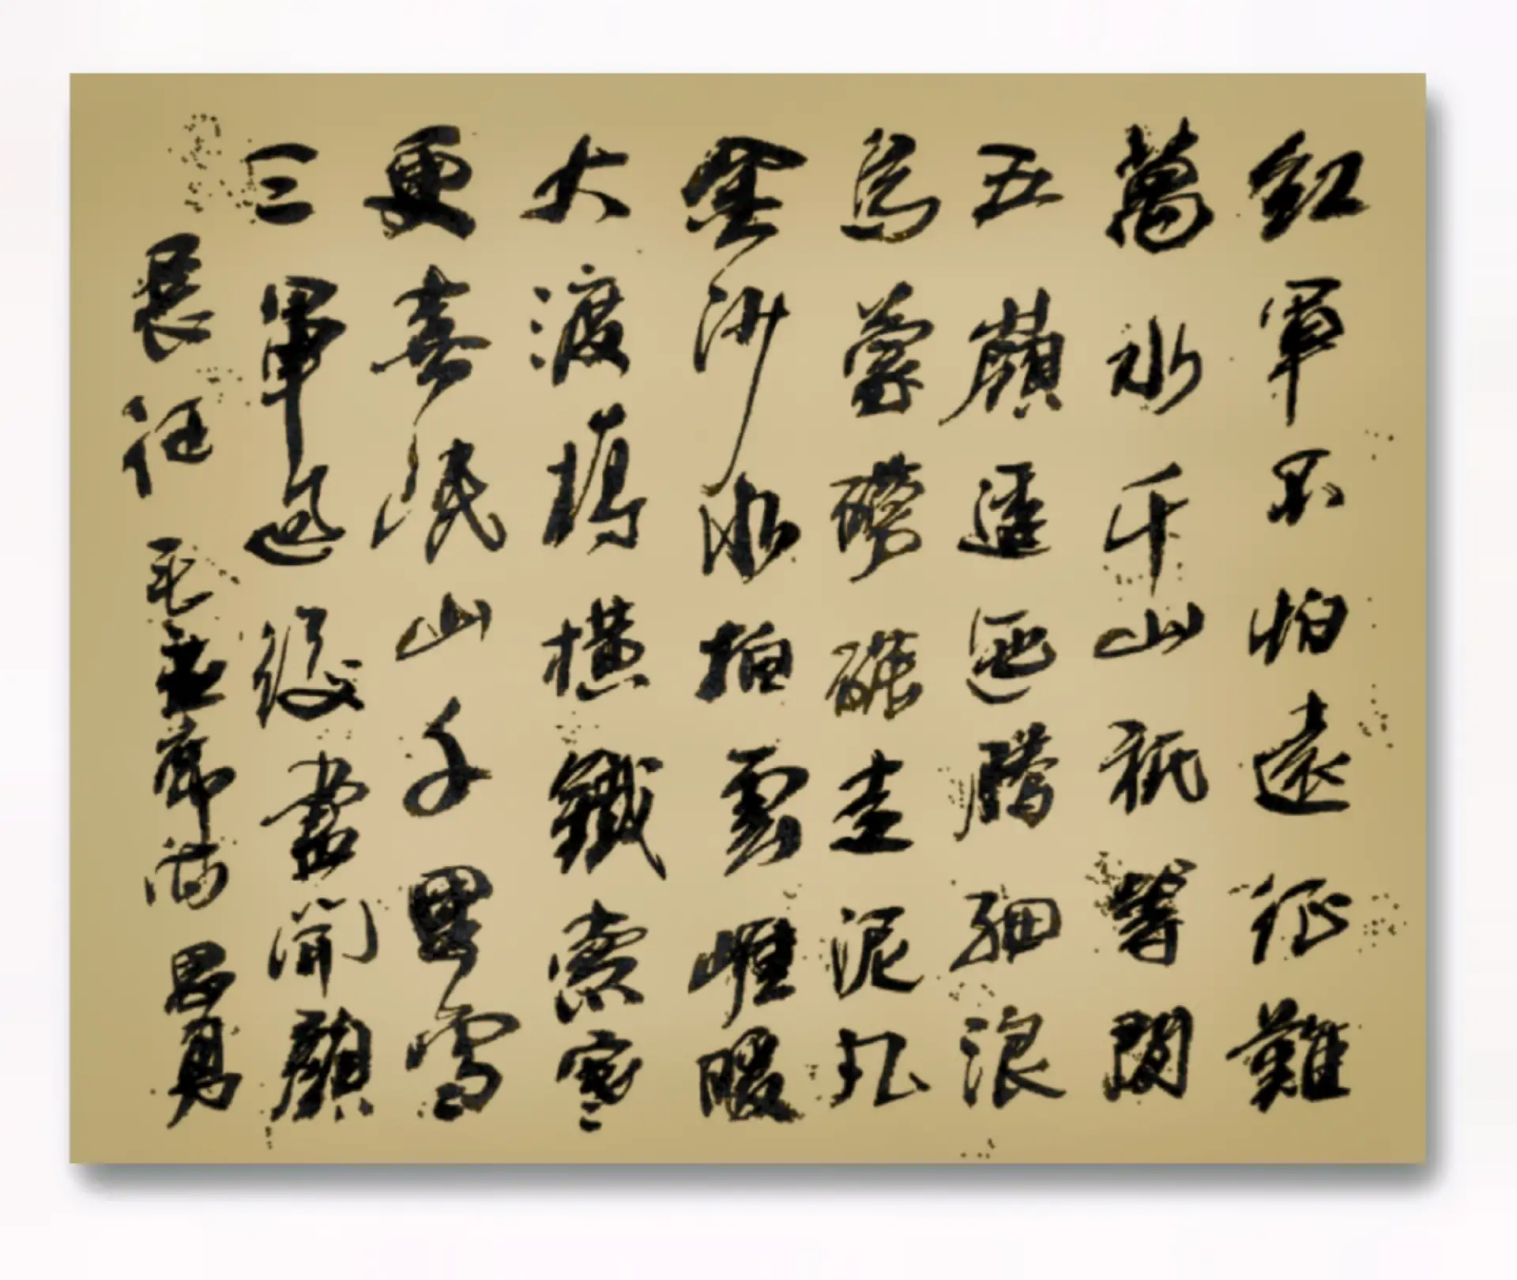 紅軍不怕遠征難
萬水千山祇等閑
五嶺逶迤騰細浪
烏蒙磅礴走泥丸
金沙水拍雲崖暖
大渡橋橫鐵索寒
更喜岷山千里雪
三軍過後盡開顏
長征 毛主席詞